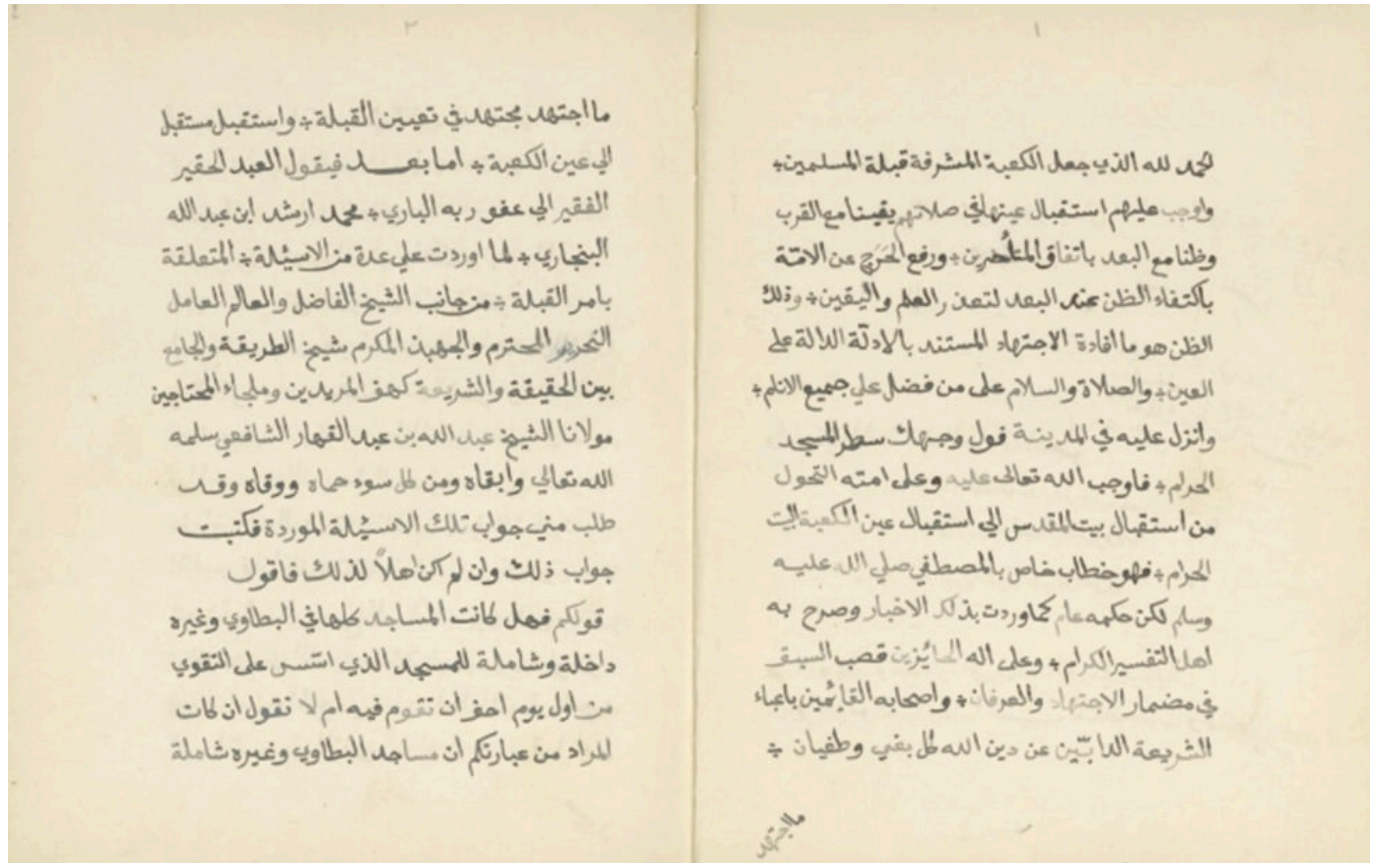 ١
الحمد لله الذي جعل الكعبة المشرفة قبلة المسلمين ؞
واوجب عليهم استقبال عينها في صلاتهم يقينا مع القرب
وظنا مع البعد باتفاق المتأخرين ؞ ورفع الحَرَج عن الامّة
باكتفاء الظن عند البعد لتعذر العلم واليقين ؞ وذلك
الظن هو ما افادة الاجتهاد المستند بالادلّة الدالة على
العين ؞ والصلاة والسلام على من فضل علي جميع الانام ؞
وانزل عليه في المدينة فول وجهك سطر المسجد
الحرام ؞ فاوجب الله تعالى عليه وعلى امته التحول
من استقبال بيت المقدس الي استقبال عين الكعبة البيت
الحرام ؞ فهو خطاب خاص بالمصطفي صلي الله عليه
وسلم لكن حكمه عام كما وردت بذلك الاخبار وصرح به
اهل التفسير الكرام ؞ وعلى اله الحائزين قصب السبق
في مضمار الاجتهاد والعرفان ؞ واصحابه القائمين باعباء
الشريعة الذابّين عن دين الله كل بغي وطغيان ؞
ما اجتهد
٢
ما اجتهد مجتهد في تعيين القبلة ؞ واستقبل مستقبل
الي عين الكعبة ؞ اما بعد فيقول العبد الحقير
الفقير الي عفو ربه الباري ؞ محمد ارشد ابن عبد الله
البنجاري ؞ لما اوردت علي عدة من الاسئلة ؞ المتعلقة
بامر القبلة ؞ من جانب الشيخ الفاضل والعالم العامل
النحرير المحترم والجهبذ المكرم شيخ الطريقة والجامع
بين الحقيقة والشريعة كهف المريدين وملجاء المحتاجين
مولانا الشيخ عبد الله بن عبد القهار الشافعي سلمه
الله تعالي وابقاه ومن كل سوء حماه ووقاه وقد
طلب مني جواب تلك الاسئلة الموردة فكتبت
جواب ذلك وان لم اكن اهلاً لذلك فاقول
قولكم فهل كانت المساجد كلها في البطاوي وغيره
داخلة وشاملة للمسجد الذي اسّس على التقوي
من اول يوم احق ان تقوم فيه ام لا نقول ان كات
المراد من عبارتكم ان مساجد البطاوي وغيره شاملة